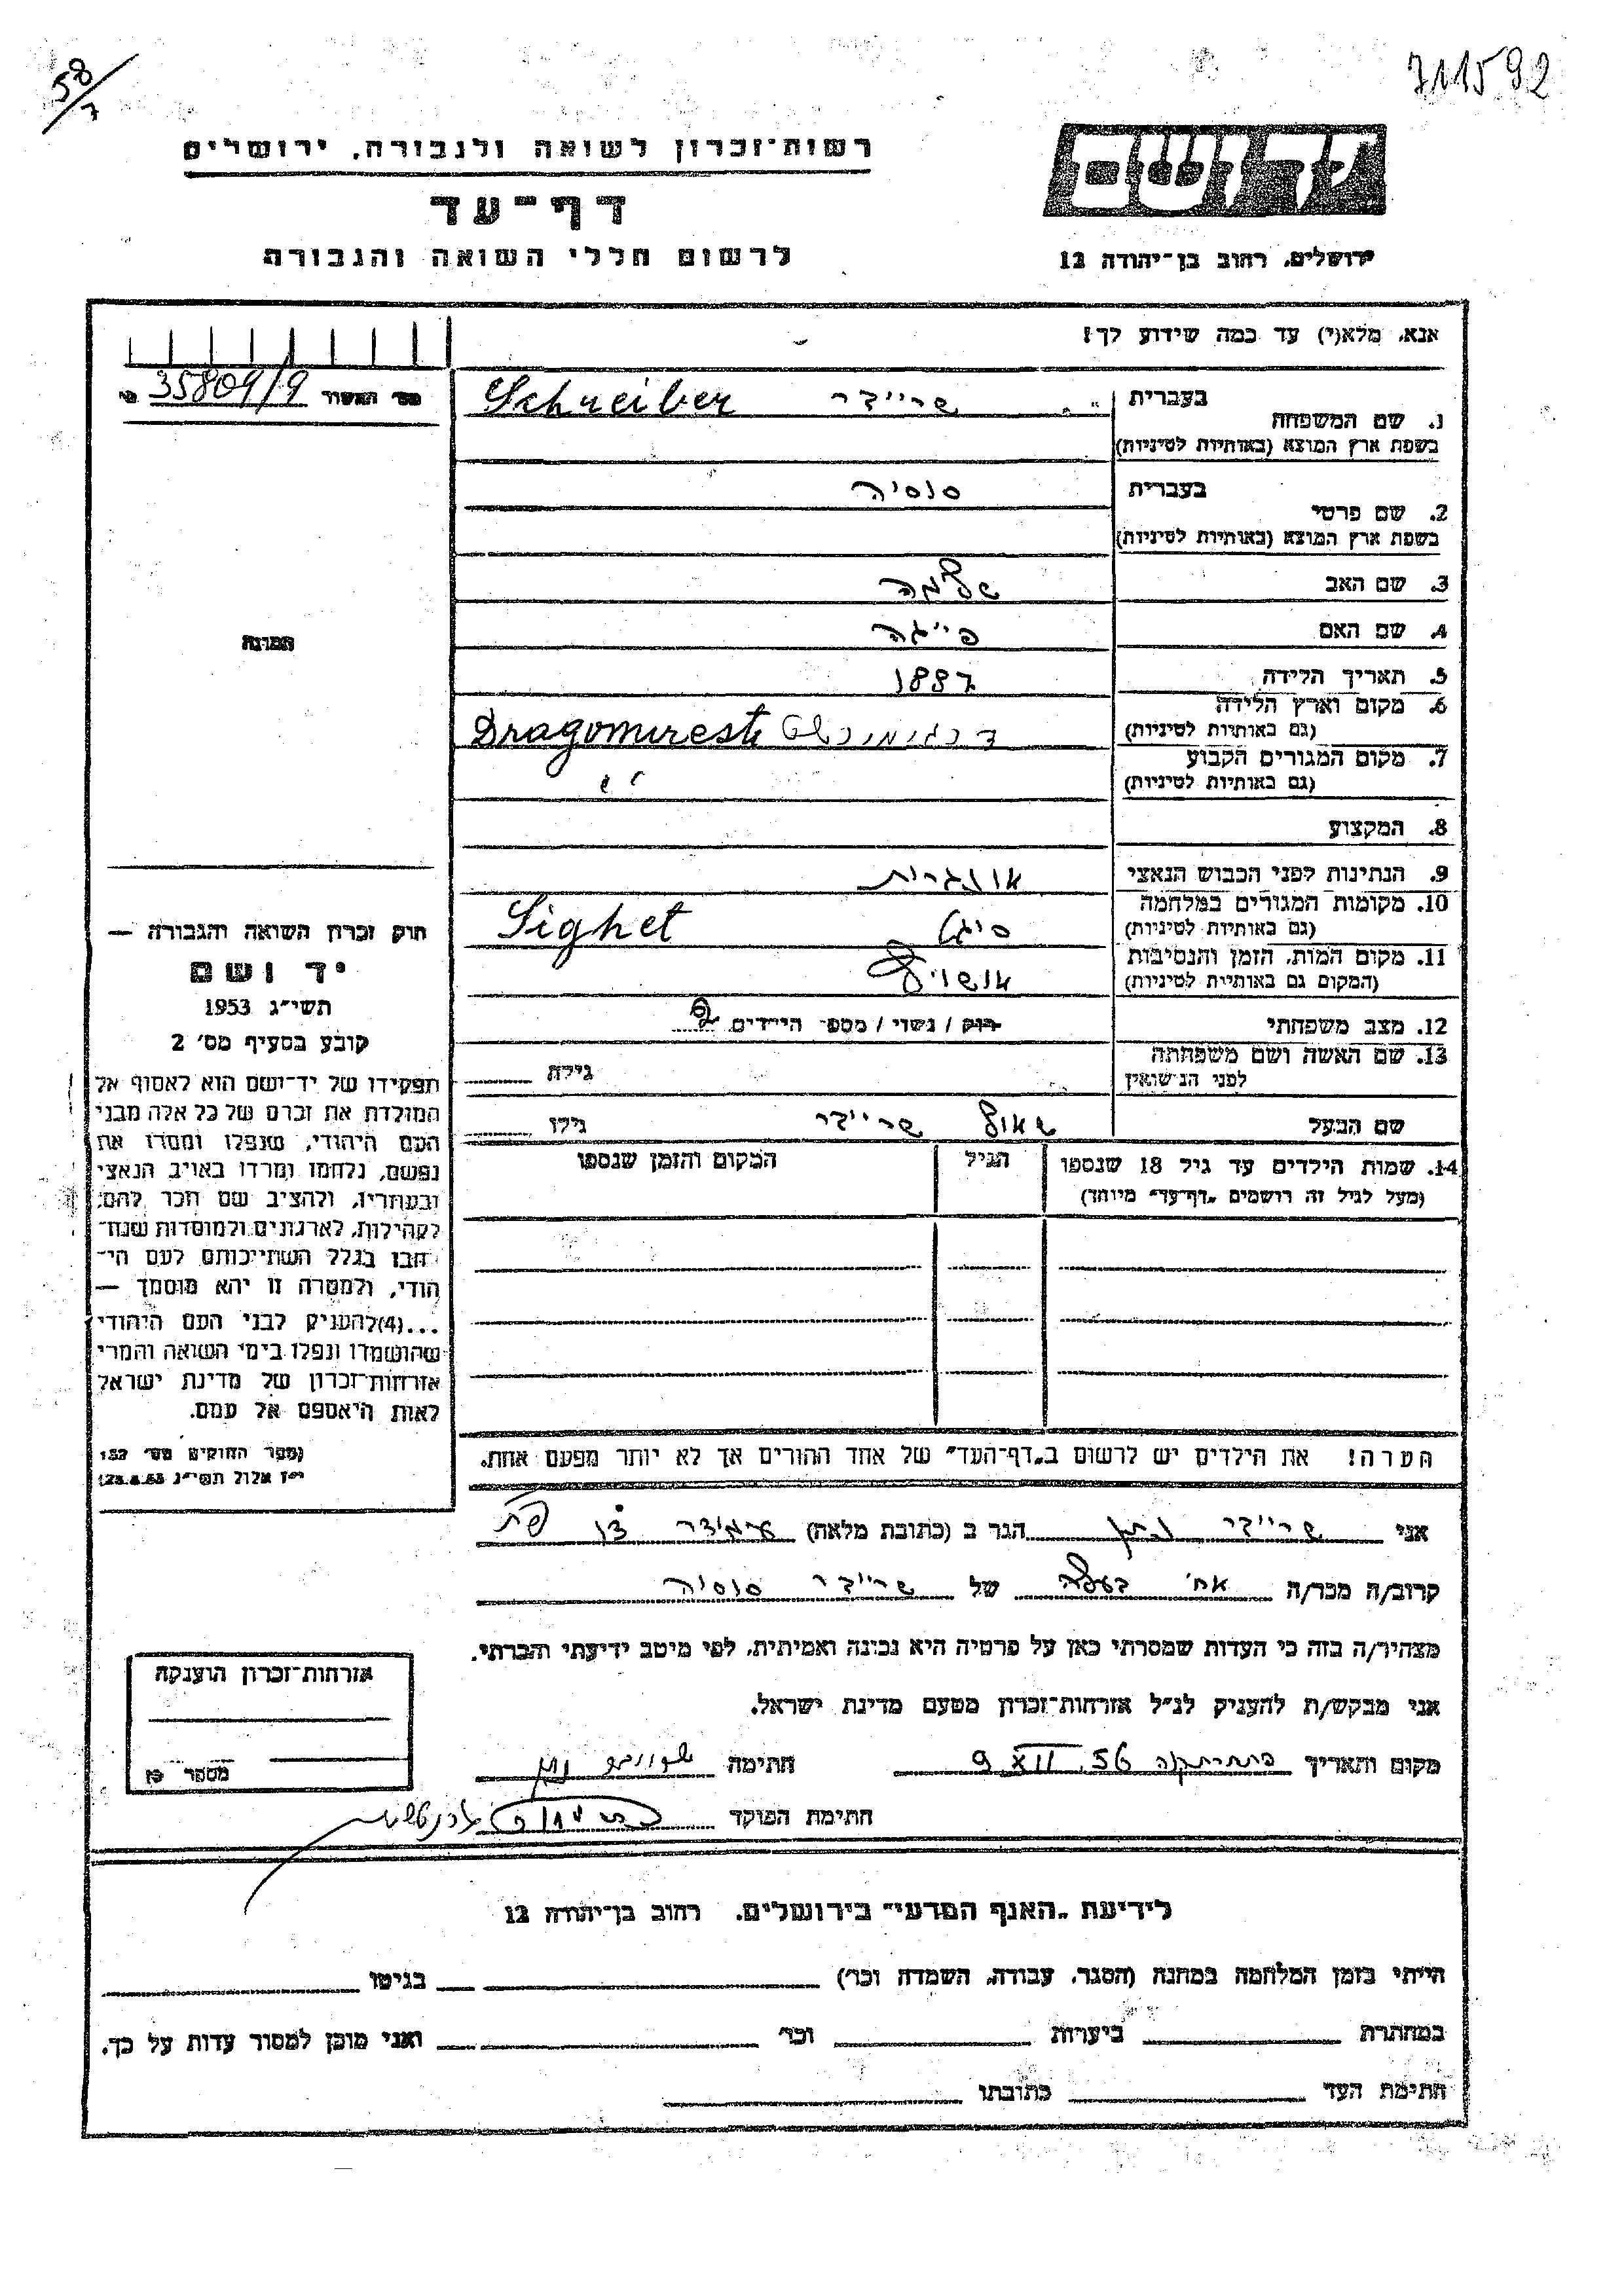 711592
58/7
יד ושם
ירושלים, רחוב בן־יהודה 12
רשות־זכרון לשואה ולגבורה, ירושלים
דף־עד
לרשום חללי השואה והגבורה
אנא, מלא(י) עד כמה שידוע לך!
מס' האשור 35809/9
1. שם המשפחה בעברית שרייבר Schreiber
בשפת ארץ המוצא (באותיות לטיניות)
2. שם פרטי בעברית סוסיה
בשפת ארץ המוצא (באותיות לטיניות)
3. שם האב שלמה
4. שם האם פייגה
5. תאריך הלידה 1887
6. מקום וארץ הלידה Dragomiresti
(גם באותיות לטיניות)
7. מקום המגורים הקבוע
(גם באותיות לטיניות)
8. המקצוע
9. הנתינות לפני הכבוש הנאצי אונגרית
10. מקומות המגורים במלחמה סיגט Sighet
(גם באותיות לטיניות)
11. מקום המות, הזמן והנסיבות אושויץ
(המקום גם באותיות לטיניות)
12. מצב משפחתי רווק / נשוי / מספר הילדים
13. שם האשה ושם משפחתה גילה
לפני הנישואין
שם הבעל שאול שרייבר גילו
14. שמות הילדים עד גיל 18 שנספו הגיל המקום והזמן שנספו
(מעל לגיל זה רושמים „דף־עד" מיוחד)
הערה! את הילדים יש לרשום ב„דף־העד" של אחד ההורים אך לא יותר מפעם אחת.
תמונה
חוק זכרון השואה והגבורה —
יד ושם
תשי״ג 1953
קובע בסעיף מס' 2
תפקידו של יד־ושם הוא לאסוף אל
המולדת את זכרם של כל אלה מבני
העם היהודי, שנפלו ומסרו את
נפשם, נלחמו ומרדו באויב הנאצי
ובעוזריו, ולהציב שם וזכר להם,
לקהילות, לארגונים ולמוסדות שנח־
רבו בגלל השתייכותם לעם הי־
הודי, ולמטרה זו יהא מוסמך —
...(4) להעניק לבני העם היהודי
שהושמדו ונפלו בימי השואה והמרי
אזרחות־זכרון של מדינת ישראל
לאות היאספם אל עמם.
(ספר החוקים מס' 132
י״ז אלול תשי״ג 28.8.53)
אני שרייבר נתן הגר ב (כתובת מלאה)
קרוב/ה מכר/ה אח' בעלה של שרייבר סוסיה
מצהיר/ה בזה כי העדות שמסרתי כאן על פרטיה היא נכונה ואמיתית, לפי מיטב ידיעתי והכרתי.
אני מבקש/ת להעניק לנ״ל אזרחות־זכרון מטעם מדינת ישראל.
מקום ותאריך 9 XII. 56 חתימה
חתימת הפוקד
אזרחות־זכרון הוענקה
מספר
לידיעת „האגף המדעי" בירושלים, רחוב בן־יהודה 12
הייתי בזמן המלחמה במחנה (הסגר, עבודה, השמדה וכו') בגיטו
במחתרת ביערות וכו' ואני מוכן למסור עדות על כך.
חתימת העד כתובתו